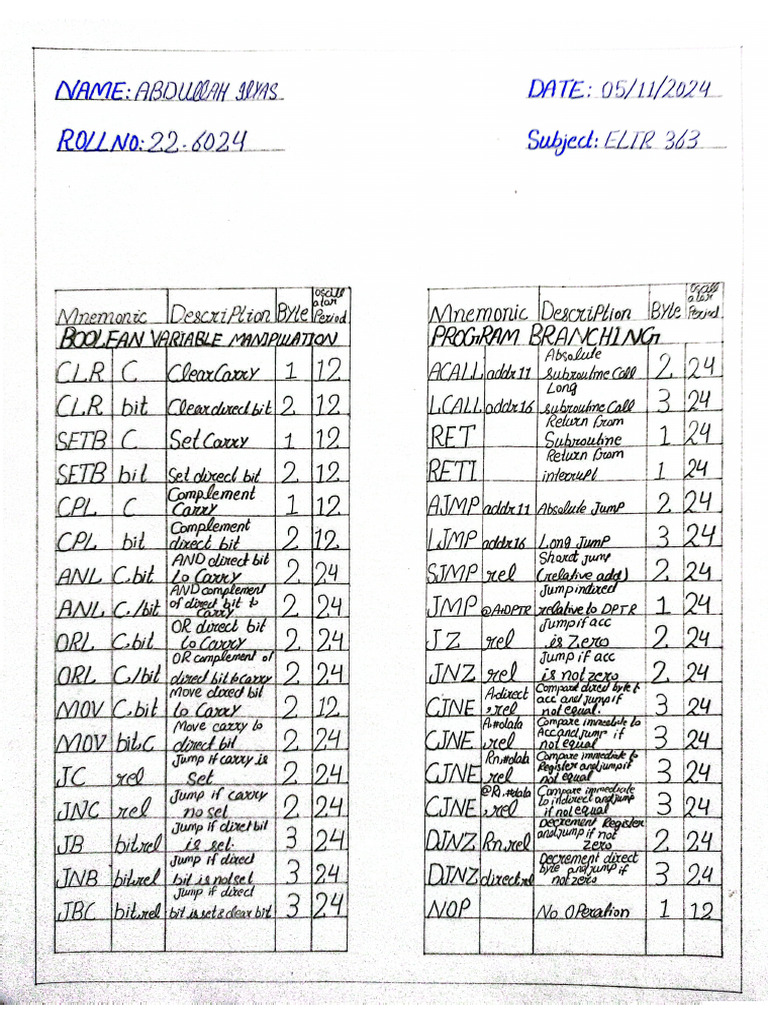 NAME: ABDULLAH ILYAS
DATE: 05/11/2024
ROLL NO: 22-6024
Subject: ELTR 363
Mnemonic Description Byte Oscillator Period
BOOLEAN VARIABLE MANIPULATION
CLR C Clear Carry 1 12
CLR bit Clear direct bit 2 12
SETB C Set Carry 1 12
SETB bit Set direct bit 2 12
CPL C Complement Carry 1 12
CPL bit Complement direct bit 2 12
ANL C.bit AND direct bit to Carry 2 24
ANL C./bit AND complement of direct bit to carry 2 24
ORL C.bit OR direct bit to Carry 2 24
ORL C./bit OR complement of direct bit to carry 2 24
MOV C.bit Move direct bit to Carry 2 12
MOV bit.C Move carry to direct bit 2 24
JC rel Jump if carry is Set 2 24
JNC rel Jump if carry no set 2 24
JB bit.rel Jump if direct bit is set. 3 24
JNB bit.rel Jump if direct bit is not set 3 24
JBC bit.rel Jump if direct bit is set & clear bit 3 24
Mnemonic Description Byte Oscillator Period
PROGRAM BRANCHING
ACALL addr11 Absolute subroutine Call 2 24
LCALL addr16 Long subroutine Call 3 24
RET Return from Subroutine 1 24
RETI Return from interrupt 1 24
AJMP addr11 Absolute Jump 2 24
LJMP addr16 Long Jump 3 24
SJMP rel Short jump (relative add) 2 24
JMP @A+DPTR Jump indirect relative to DPTR 1 24
JZ rel Jump if acc is Zero 2 24
JNZ rel Jump if acc is not zero 2 24
CJNE A.direct ,rel Compare direct byte to acc and jump if not equal. 3 24
CJNE A.#data ,rel Compare immediate to Acc and jump if not equal 3 24
CJNE Rn.#data rel Compare immediate to Register and jump if not equal 3 24
CJNE @Ri.#data ,rel Compare immediate to indirect and jump if not equal 3 24
DJNZ Rn.rel Decrement Register and jump if not zero 2 24
DJNZ direct.rel Decrement direct byte and jump if not zero 3 24
NOP No Operation 1 12